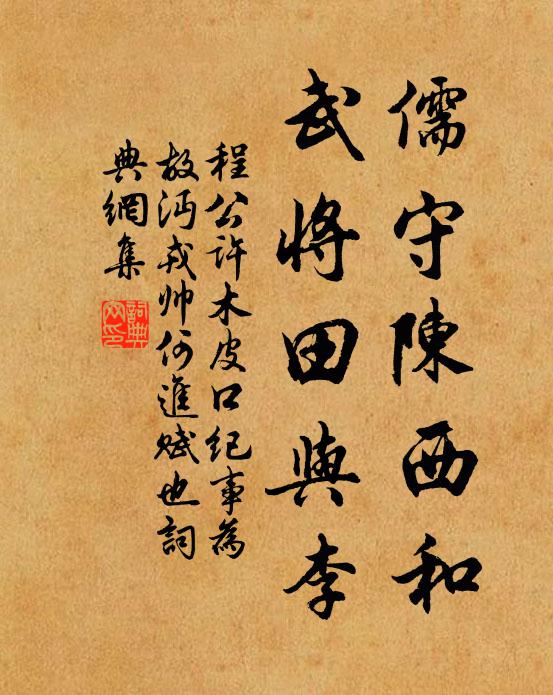 儒守陳西和
武將田與李
程公許木皮口紀事為
故沔戎帥何進賦也詞
典網集
詞典
网印